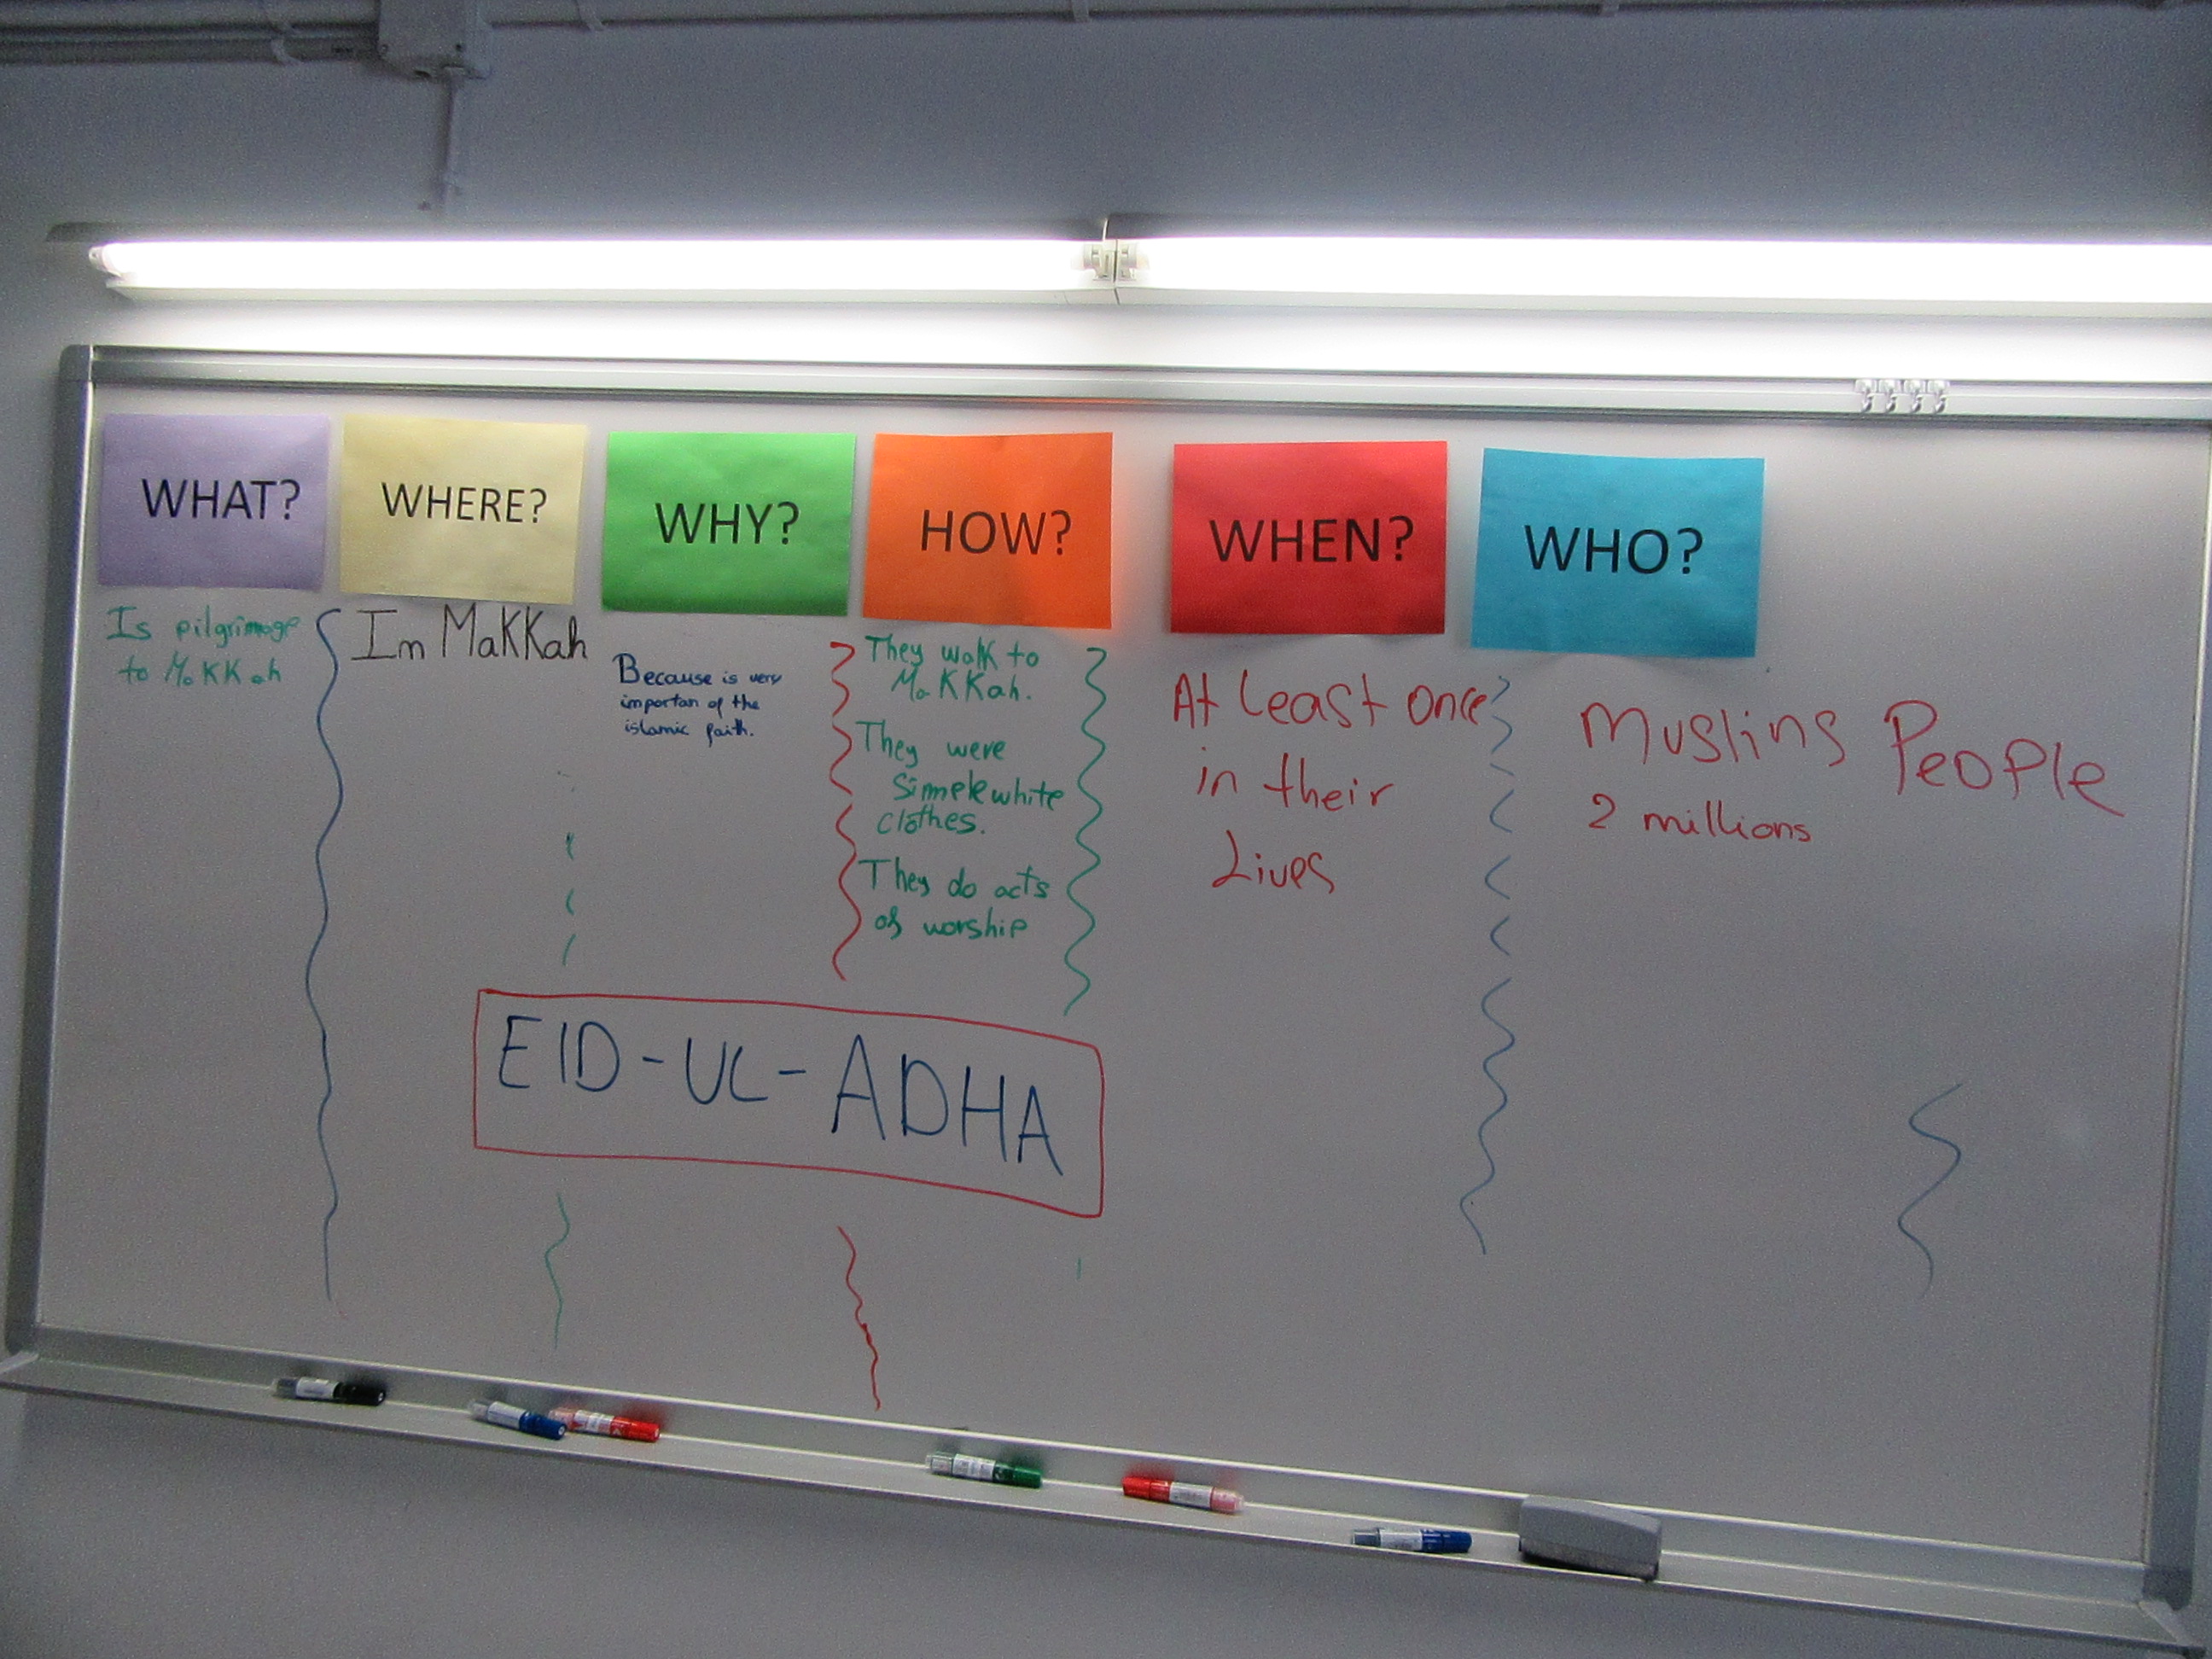 WHAT?
Is pilgrimage
to MaKKah
WHERE?
In MaKKah
WHY?
Because is very
importan of the
islamic faith.
HOW?
They walk to
MaKKah.
They were
Simple white
clothes.
They do acts
of worship
WHEN?
At Least once
in their
Lives
WHO?
Muslins People
2 millions
EID-UL-ADHA